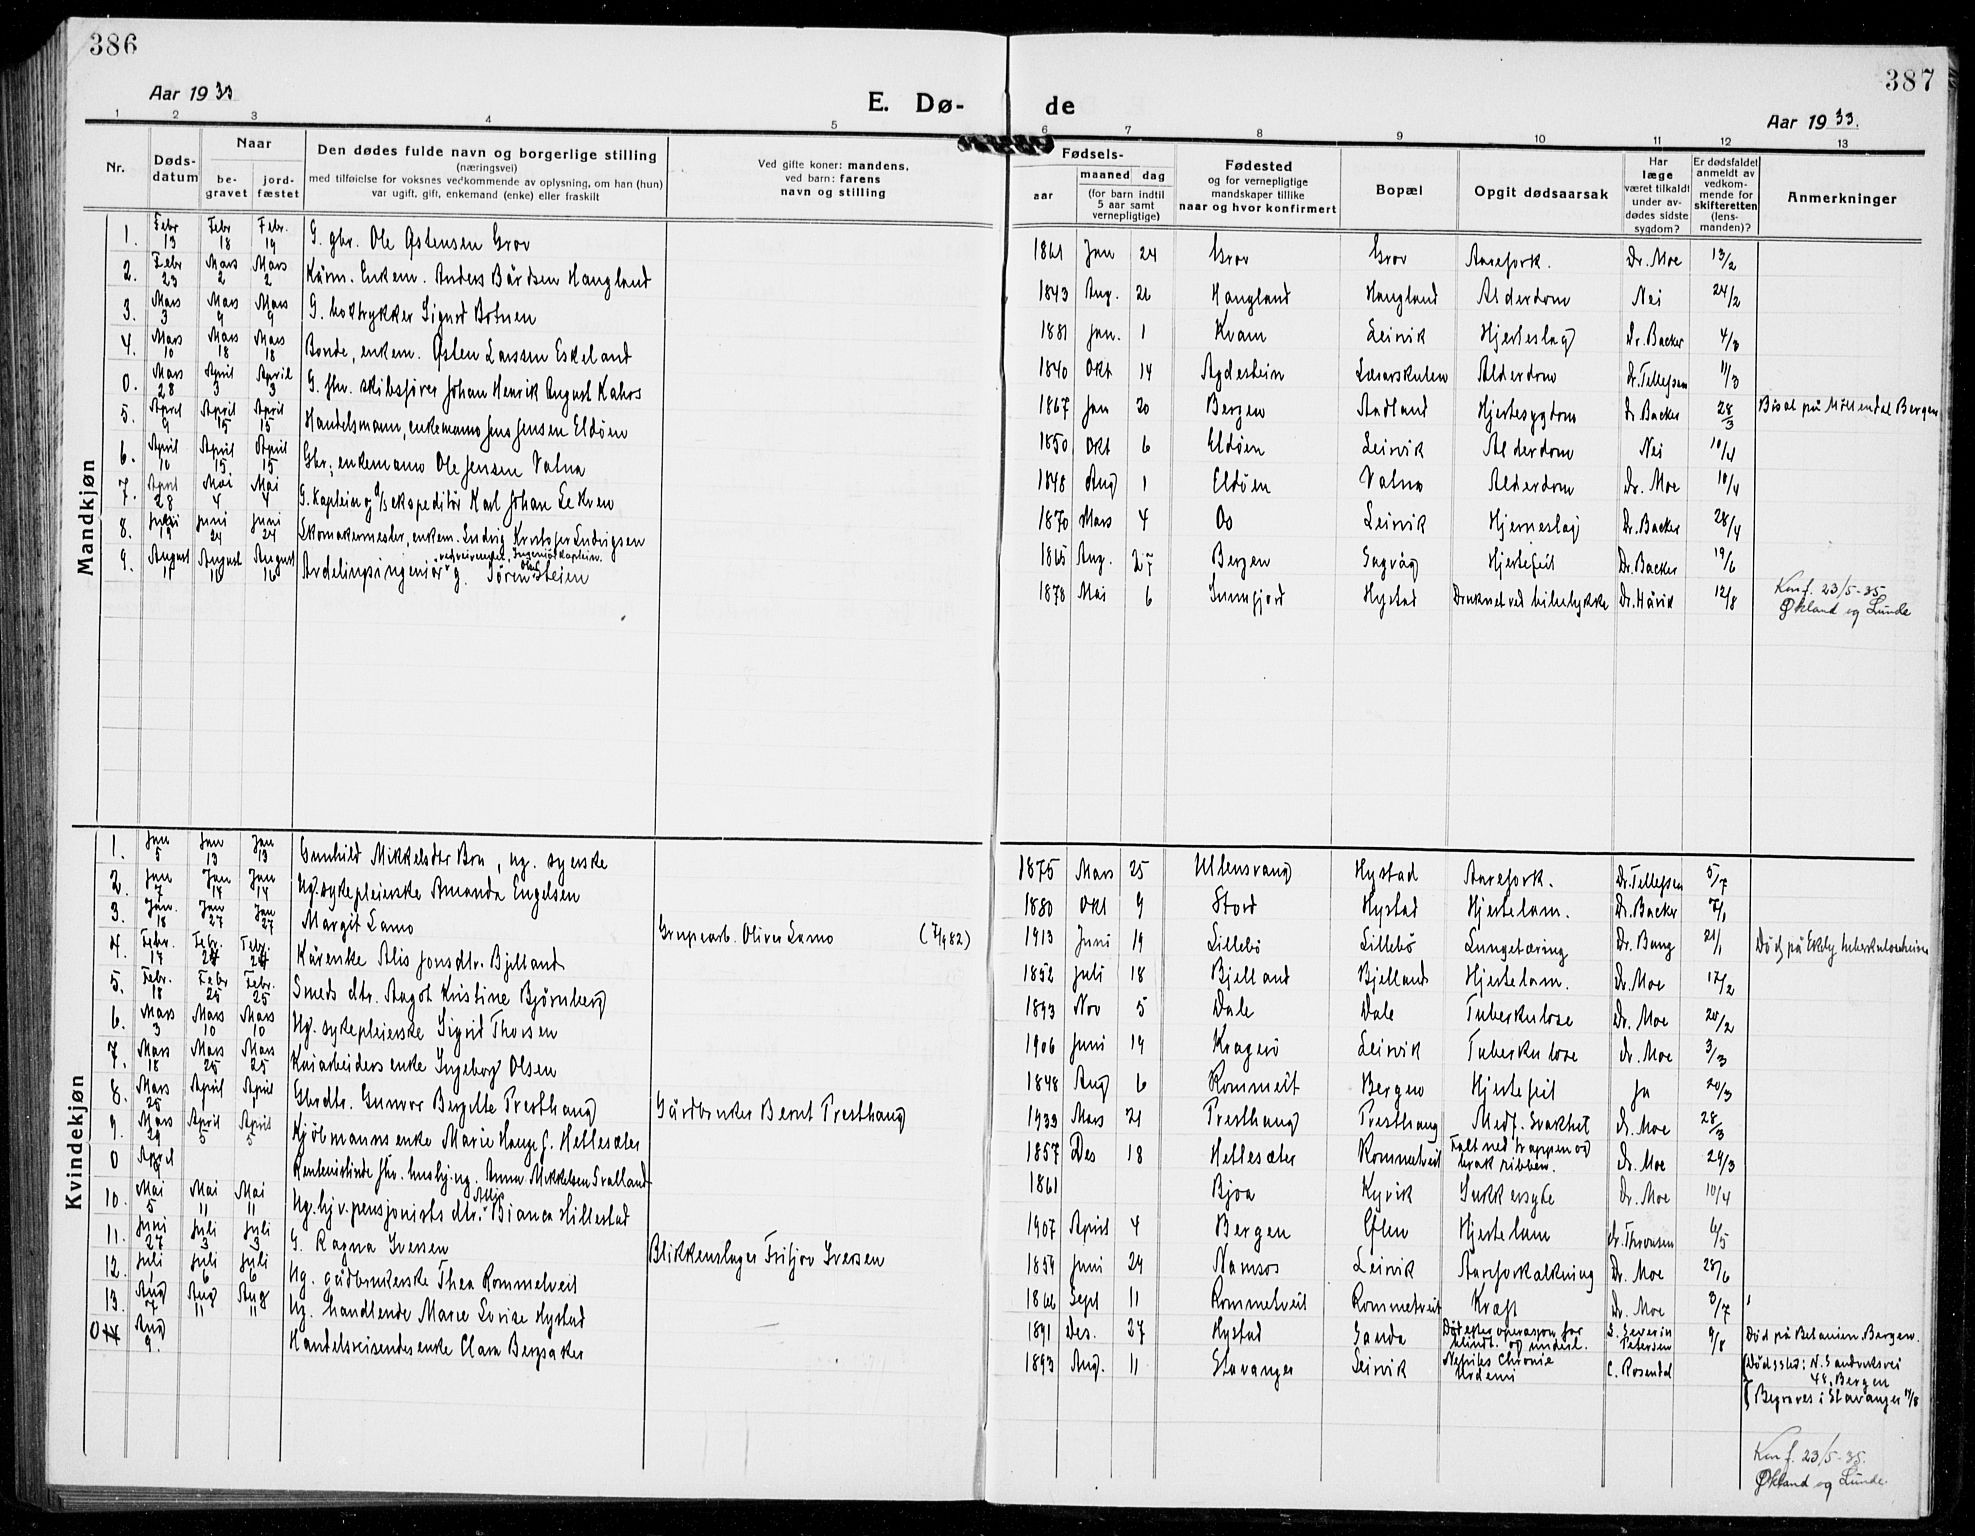 386
Aar 1933
E. Dø-
1 2 3 4 5
Nr.
Døds-
datum
Naar
be-
gravet
jord-
fæstet
Den dødes fulde navn og borgerlige stilling
(næringsvei)
med tilføielse for voksnes vedkommende av oplysning, om han (hun)
var ugift, gift, enkemand (enke) eller fraskilt
Ved gifte koner: mandens,
ved barn: farens
navn og stilling
Mandkjøn
1. Febr 13 Febr 18 Febr. 19 G. gbr. Ole Østensen Grov
2. Febr 23 Mars 2 Mars 2 Kårm. Enkem. Anders Bårdsen Haugland
3. Mars 3 Mars 9 Mars 9 G. boktrykker Sigurd Botnen
4. Mars 10 Mars 18 Mars 18 Bonde, enkem. Østen Larssen Eskeland
0. Mars 28 April 3 April 3 G. fhv. skibsfører Johan Henrik August Kahrs
5. April 9 April 15 April 15 Handelsmann, enkemann Jens Jensen Eldøen
6. April 10 April 15 April 15 Gbr., enkemann Ole Jensen Valna
7. April 28 Mai 4 Mai 4 G. kaptein og D/S ekspeditør Karl Johan Lekven
8. Juni 19 Juni 24 Juni 24 Skomakermester, enkem. Ludvig Kristofer Ludvigsen
9. August 11 August 16 August 16 Avdelingsingeniør g. Søren Olaf Steien
Kvindekjøn
1. Jan 5 Jan 13 Jan 13 Gunhild Mikkelsdtr Bra, ug. syerske
2. Jan 7 Jan 14 Jan 14 Ug. sykepleierske Amanda Engelsen
3. Jan. 18 Jan 27 Jan 27 Margit Lamo Grupearb. Oliver Lamo
4. Febr. 17 Febr. 24 Febr. 24 Kårenke Alis Jonsdtr. Bjelland
5. Febr. 18 Febr 25 Febr. 25 Smeds dtr. Aagot Kristine Bjørnberg
6. Mars 3 Mars 10 Mars 10 Ug. sykepleierske Sigrid Thorsen
7. Mars 18 Mars 25 Mars 25 Kaiarbeiders enke Ingeborg Olsen
8. Mars 25 April 1 April 1 Gbrdtr. Gunvor Bergitte Presthaug Gårdbruker Bernt Presthaug
9. Mars 29 April 5 April 5 Kjøbmanns enke Marie Hauge f. Hellesæter
0 April 8 Rentenistinde fhv. husbj. ug. Anna Mikkelsen Svalland
10. Mai 5 Mai 11 Mai 11 Ug. hj.v. pensjonists dtr. Bianca Hillestad
11. Juni 27 Juli 3 Juli 3 G. Ragna Iversen Blikkenslager Fritjov Iversen
12. Juli 1 Juli 6 Juli 6 Ug. gådbrukerske Thea Rommetveit
13. Aug 7 Aug 11 Aug 11 Ug. handlende Marie Lovise Hystad
0 Aug 9. Handelsreisendes enke Clara Bergsaker
387
de
Aar 1933.
6 7 8 9 10 11 12 13
Fødsels-
aar
maaned dag
(for barn indtil
5 aar samt
vernepligtige)
Fødested
og for vernepligtige
mandskaper tillike
naar og hvor konfirmert
Bopæl
Opgit dødsaarsak
Har
læge
været tilkaldt
under av-
dødes sidste
sygdom?
Er dødsfaldet
anmeldt av
vedkom-
mende for
skifteretten
(lens-
manden)?
Anmerkninger
1861 Jan 24 Grov Grov Aarefork. Dr. Moe 13/2
1843 Aug. 26 Haugland Haugland Alderdom Nei 24/2
1881 Jan. 1 Kvam Leirvik Hjerteslag Dr. Backer 4/3
1840 Okt 14 Agdestein Lærarskulen Alderdom Dr. Tellefsen 11/3
1867 Jan 20 Bergen Aadland Hjertesygdom Dr Backer 28/3 Bisat på Møllendal Bergen
1850 Okt 6 Eldøen Leirvik Alderdom Nei 10/4
1848 Aug 1 Eldøen Valna Alderdom Dr. Moe 10/4
1870 Mars 4 Os Leirvik Hjerneslag Dr. Backer 28/4
1865 Aug. 27 Bergen Sagvåg Hjertefeil Dr. Backer 19/6
1878 Mai 6 Sunnfjord Hystad Druknet ved bilulykke Dr. Hårvik 12/8 Konf. 23/5-35
Økland og Lunde
1875 Mars 25 Ullensvang Hystad Aarefork. Dr. Tellefsen 5/7
1880 Okt 9 Stord Hystad Hjertelam. Dr. Backer 7/1
1913 Juni 19 Lillebö Lillebö Lungetæring Dr. Bang 21/1 Död på Ekely tuberkuloseheim
1852 Juli 18 Bjelland Bjelland Hjertelam. Dr. Moe 17/2
1893 Nov 5 Dale Dale Tuberkulose Dr. Moe 20/2
1906 Juni 19 Kragerö Leirvik Tuberkulose Dr. Moe 3/3
1848 Aug 6 Rommeit Bergen Hjertefeil Ja 20/3
1933 Mars 21 Presthaug Presthaug Medf. Svakhet Dr. Moe 28/3
1857 Des 18 Hellesæter Rommetveit Falt ned trappen og
brak ribben. Dr. Moe 29/3
1861 Bjoa Kyvik Sukkersyke Dr. Moe 10/4
1907 April 4 Bergen Ølen Hjertelam Dr. Thovsen 6/5
1854 Juni 24 Namsos Leirvik Aareforkalkning Dr. Moe 28/6
1866 Sept 11 Rommetveit Rommetveit Kræft Dr. Moe 3/7
1891 Des. 27 Hystad Sanda Död etter operasjon for
blindt. og underl. S. Severin
Petersen 9/8 Död på Betanien, Bergen.
1893 Aug. 11 Stavanger Leirvik Nefrites Chronic
Urdemi C. Rosendal Dödssted: N. Sandviksvei
48, Bergen
Begraves i Stavanger 11/8
Konf. 23/5-35.
Økland og Lunde